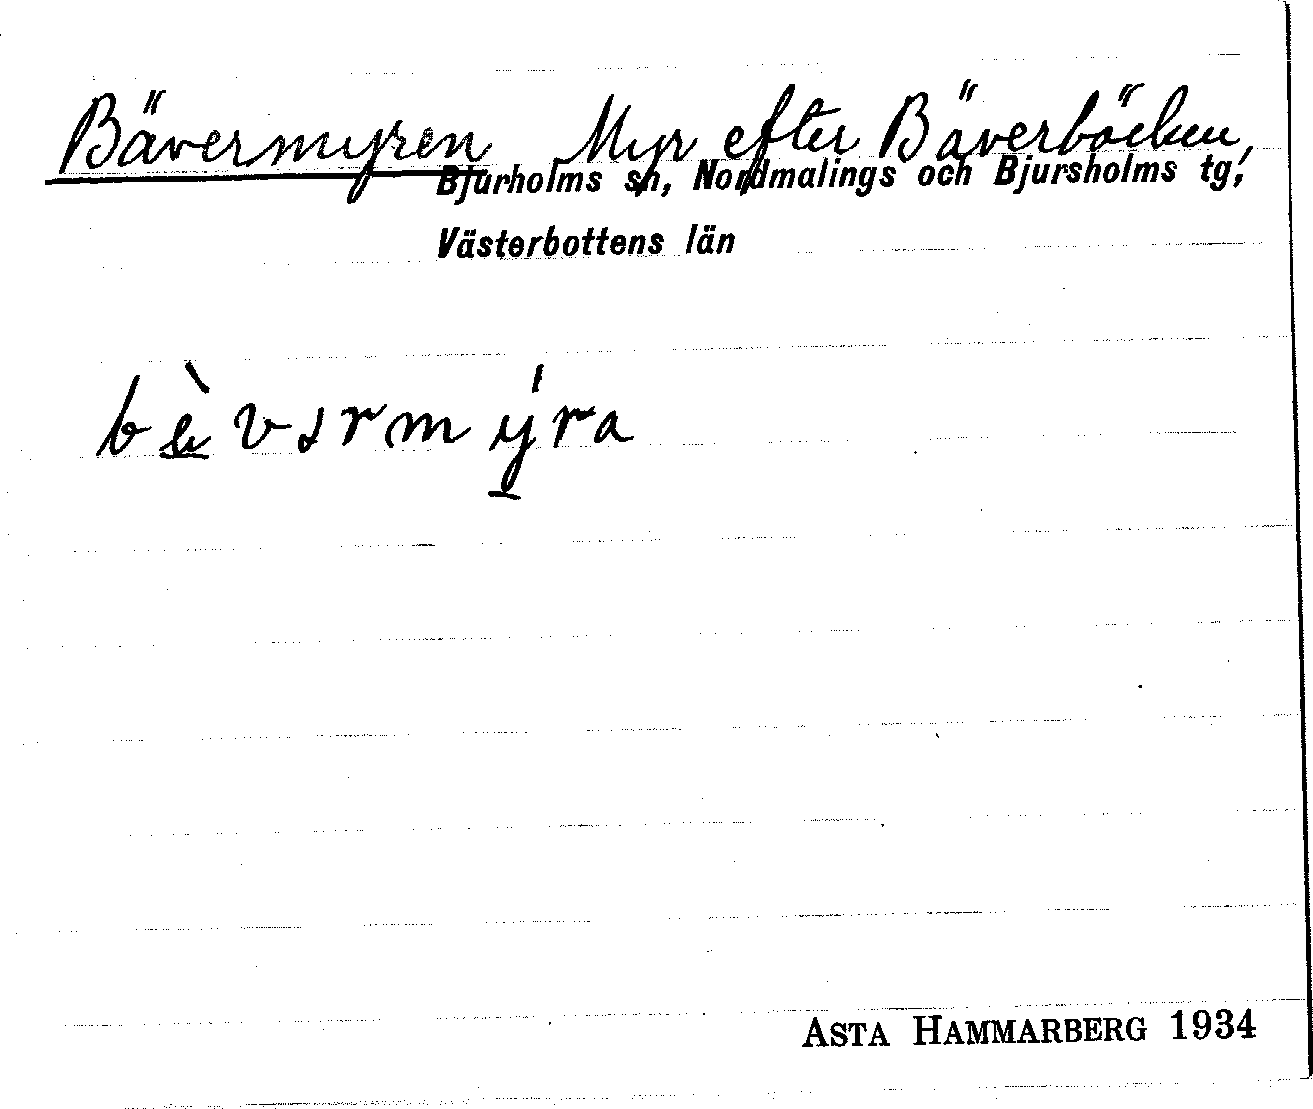 Bävermyren Myr efter Bäverbäcken,
Bjurholms sn, Nordmalings och Bjursholms tg,
Västerbottens län
bæ̀vərmýra
ASTA HAMMARBERG 1934